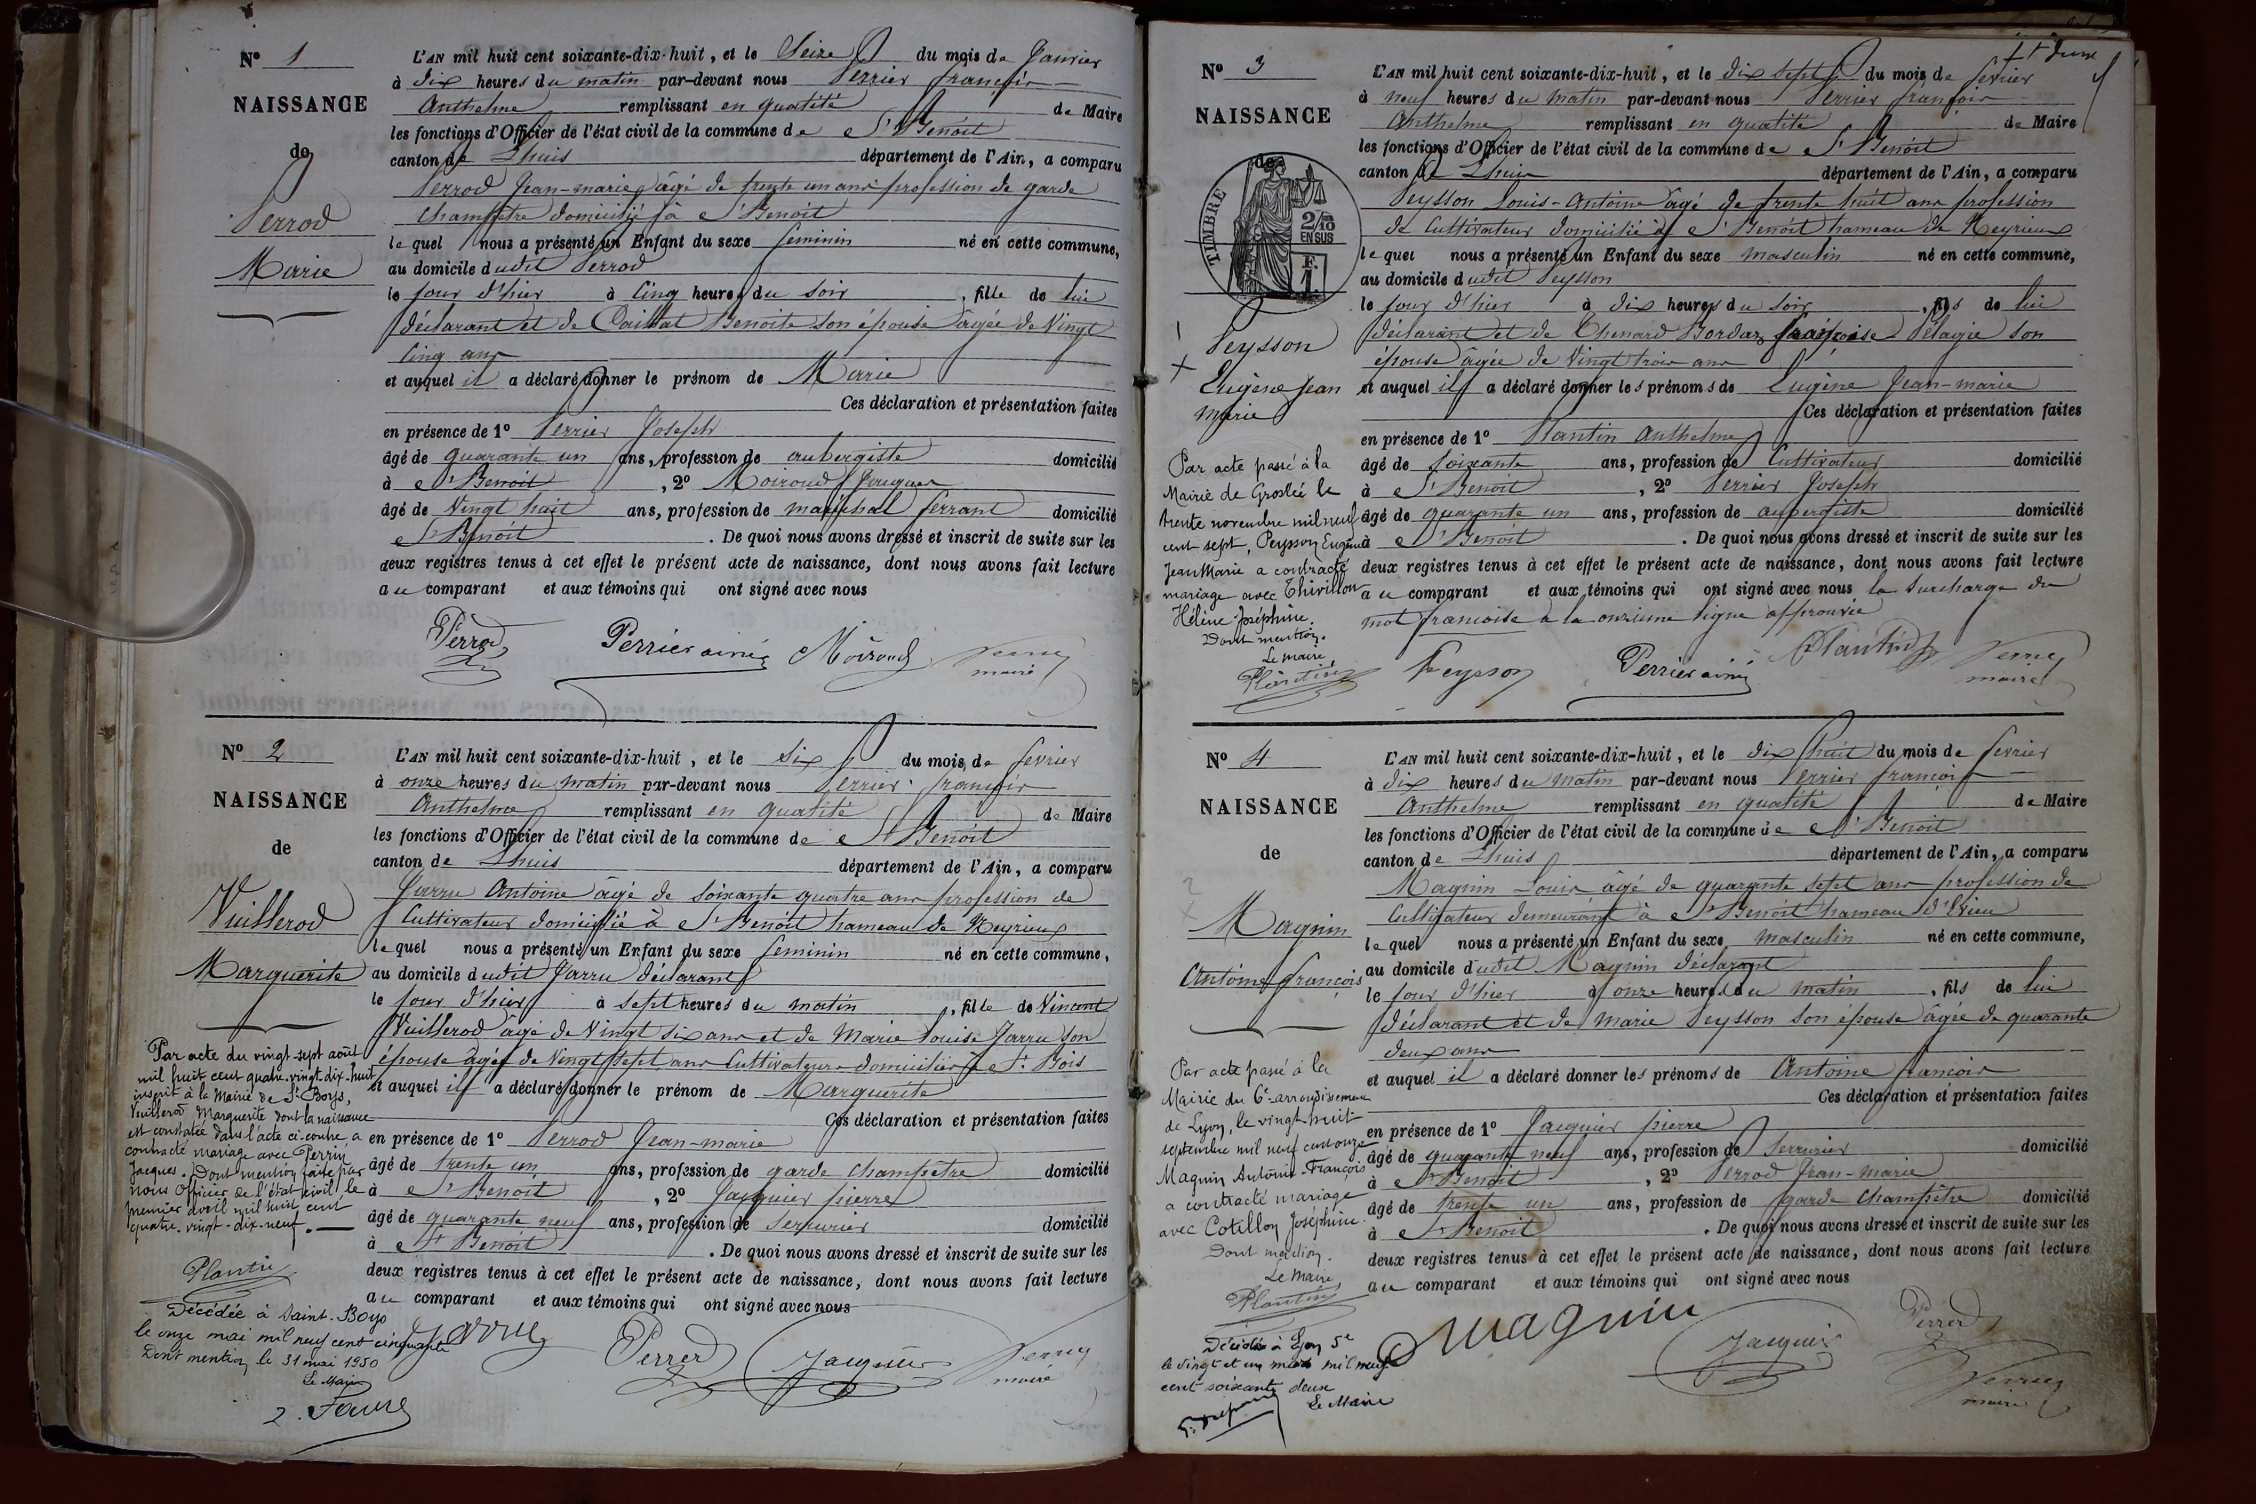 Nº 1
NAISSANCE
de
Perrod
Marie
L'AN mil huit cent soixante-dix-huit, et le Seize du mois de Janvier
à dix heures du matin par-devant nous Perrier françois
Anthelme remplissant en qualité de Maire
les fonctions d'Officier de l'état civil de la commune de St Benoit
canton de Lhuis département de l'Ain, a comparu
Perrod Jean-marie âgé de trente un ans profession de garde
champêtre domicilié à St Benoit
lequel nous a présenté un Enfant du sexe feminin né en cette commune,
au domicile dudit Perrod
le jour d'hier à cinq heures du soir, fille de lui
déclarant et de Caillat Benoite son épouse âgée de Vingt
cinq ans
et auquel il a déclaré donner le prénom de Marie
Ces déclaration et présentation faites
en présence de 1º Perrier Joseph
âgé de quarante un ans, profession de aubergiste domicilié
à St Benoit, 2º Moiroud Jacques
âgé de Vingt huit ans, profession de maréchal ferrant domicilié
St Benoit. De quoi nous avons dressé et inscrit de suite sur les
deux registres tenus à cet effet le présent acte de naissance, dont nous avons fait lecture
au comparant et aux témoins qui ont signé avec nous
Perrod Perrier ainé Moiroud Perrier
maire
Nº 2
NAISSANCE
de
Vuillerod
Marguerite
L'AN mil huit cent soixante-dix-huit, et le six du mois de fevrier
à onze heures du matin par-devant nous Perrier françois
Anthelme remplissant en qualité de Maire
les fonctions d'Officier de l'état civil de la commune de St Benoit
canton de Lhuis département de l'Ain, a comparu
Jarru Antoine âgé de soixante quatre ans profession de
Cultivateur domicilié à St Benoit hameau de Meyrieux
lequel nous a présenté un Enfant du sexe feminin né en cette commune,
au domicile dudit Jarru déclarant
le jour d'hier à sept heures du matin, fille de Vincent
Vuillerod âgé de Vingt six ans et de Marie Louise Jarru son
épouse âgée de Vingt sept ans Cultivateurs domiciliés à St Bois
et auquel il a déclaré donner le prénom de Marguerite
Ces déclaration et présentation faites
en présence de 1º Perrod Jean-marie
âgé de trente un ans, profession de garde champêtre domicilié
à St Benoit, 2º Jacquier pierre
âgé de quarante neuf ans, profession de serrurier domicilié
à St Benoit. De quoi nous avons dressé et inscrit de suite sur les
deux registres tenus à cet effet le présent acte de naissance, dont nous avons fait lecture
au comparant et aux témoins qui ont signé avec nous
Jarru Perrod Jacquier Perrier
maire
Par acte du vingt-sept août
mil huit cent quatre-vingt-dix-huit
inscrit à la Mairie de St Boys,
Vuillerod Marguerite dont la naissance
est constatée dans l'acte ci-contre, a
contracté mariage avec Perrin
Jacques. Dont mention faite par
nous Officier de l'état civil le
premier avril mil huit cent
quatre-vingt-dix-neuf.
Plantin
Décédée à Saint-Boys
le onze mai mil neuf cent cinquante
Dont mention le 31 mai 1950
Le Maire
Nº 3
NAISSANCE
de
TIMBRE
2/10
EN SUS
F.
1.
Peysson
Eugène Jean
Marie
L'AN mil huit cent soixante-dix-huit, et le dix sept du mois de fevrier
à neuf heures du matin par-devant nous Perrier françois
Anthelme remplissant en qualité de Maire
les fonctions d'Officier de l'état civil de la commune de St Benoit
canton de Lhuis département de l'Ain, a comparu
Peysson Louis-Antoine âgé de trente huit ans profession
de Cultivateur domicilié à St Benoit hameau de Meyrieux
lequel nous a présenté un Enfant du sexe masculin né en cette commune,
au domicile dudit Peysson
le jour d'hier à dix heures du soir, fils de lui
déclarant et de Chenard Bordaz françoise Pélagie son
épouse âgée de Vingt trois ans
et auquel il a déclaré donner les prénoms de Eugène Jean-marie
Ces déclaration et présentation faites
en présence de 1º Plantin Anthelme
âgé de soixante ans, profession de Cultivateur domicilié
à St Benoit, 2º Perrier Joseph
âgé de quarante un ans, profession de aubergiste domicilié
à St Benoit. De quoi nous avons dressé et inscrit de suite sur les
deux registres tenus à cet effet le présent acte de naissance, dont nous avons fait lecture
au comparant et aux témoins qui ont signé avec nous la surcharge du
mot françoise à la onzième ligne approuvée
Peysson Perrier ainé Plantin Perrier
maire
Par acte passé à la
Mairie de Groslée le
trente novembre mil neuf
cent sept, Peysson Eugène
Jean Marie a contracté
mariage avec Thivillon
Hélène Joséphine.
Dont mention.
Le maire
Plantin
Nº 4
NAISSANCE
de
Magnin
Antoine françois
L'AN mil huit cent soixante-dix-huit, et le dix huit du mois de fevrier
à dix heures du matin par-devant nous Perrier françois
Anthelme remplissant en qualité de Maire
les fonctions d'Officier de l'état civil de la commune de St Benoit
canton de Lhuis département de l'Ain, a comparu
Magnin Louis âgé de quarante sept ans profession de
Cultivateur demeurant à St Benoit hameau d'Evieu
lequel nous a présenté un Enfant du sexe masculin né en cette commune,
au domicile dudit Magnin déclarant
le jour d'hier à onze heures du matin, fils de lui
déclarant et de Marie Peysson son épouse âgée de quarante
deux ans
et auquel il a déclaré donner les prénoms de Antoine francois
Ces déclaration et présentation faites
en présence de 1º Jacquier pierre
âgé de quarante neuf ans, profession de Serrurier domicilié
à St Benoit, 2º Perrod Jean-marie
âgé de trente un ans, profession de garde champêtre domicilié
à St Benoit. De quoi nous avons dressé et inscrit de suite sur les
deux registres tenus à cet effet le présent acte de naissance, dont nous avons fait lecture
au comparant et aux témoins qui ont signé avec nous
Magnin Jacquier Perrod
Perrier
maire
Par acte passé à la
Mairie du 6e arrondissement
de Lyon, le vingt-huit
septembre mil neuf cent onze
Magnin Antoine-François
a contracté mariage
avec Cotillon Joséphine.
Dont mention.
Le Maire
Plantin
Décédé à Lyon 5e
le vingt et un mars mil neuf
cent soixante deux
Le Maire